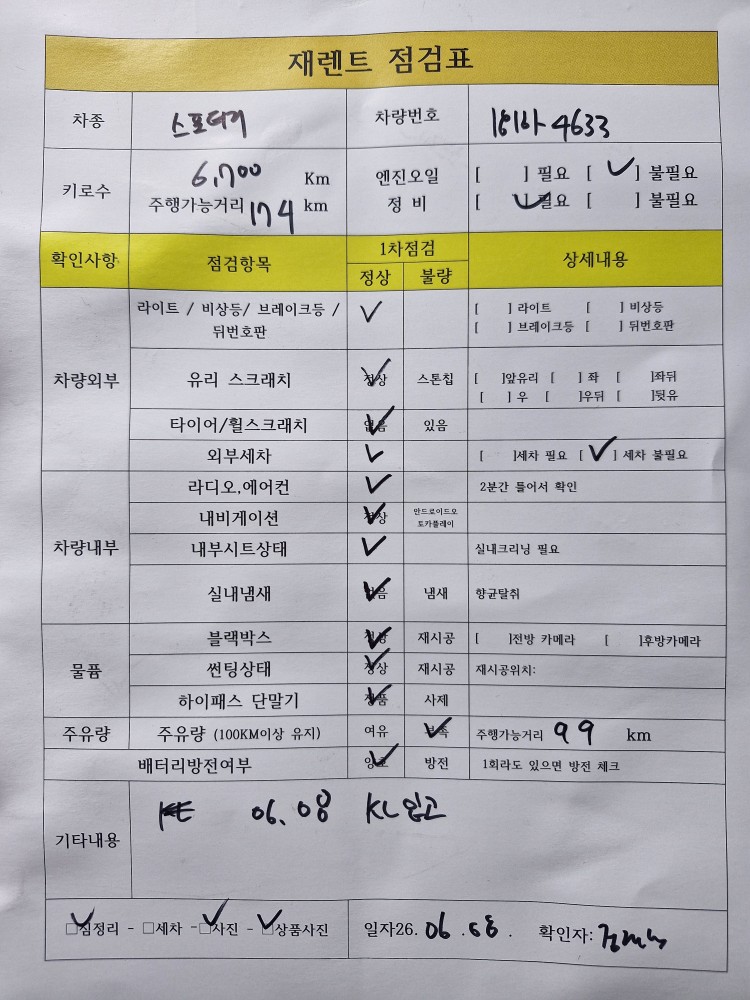 재렌트 점검표
차종 스포티지 차량번호 4633
키로수 6,700 Km 엔진오일 [ ] 필요 [ ✓ ] 불필요
주행가능거리 174 km 정 비 [ ✓ ] 필요 [ ] 불필요
확인사항 점검항목 1차점검 상세내용
정상 불량
차량외부 라이트 / 비상등/ 브레이크등 / ✓ [ ] 라이트 [ ] 비상등
뒤번호판 [ ] 브레이크등 [ ] 뒤번호판
유리 스크래치 정상 ✓ 스톤칩 [ ]앞유리 [ ] 좌 [ ]좌뒤
[ ] 우 [ ]우뒤 [ ]뒷유
타이어/휠스크래치 없음 ✓ 있음
외부세차 ✓ [ ]세차 필요 [ ✓ ] 세차 불필요
차량내부 라디오,에어컨 ✓ 2분간 틀어서 확인
내비게이션 정상 ✓ 안드로이드오
토카플레이
내부시트상태 ✓ 실내크리닝 필요
실내냄새 없음 ✓ 냄새 향균탈취
물품 블랙박스 정상 ✓ 재시공 [ ]전방 카메라 [ ]후방카메라
썬팅상태 정상 ✓ 재시공 재시공위치:
하이패스 단말기 정품 ✓ 사제
주유량 주유량 (100KM이상 유지) 여유 부족 ✓ 주행가능거리 99 km
배터리방전여부 양호 ✓ 방전 1회라도 있으면 방전 체크
기타내용 06.08 KL입고
☑짐정리 - □세차 - ☑사진 - ☑상품사진 일자26. 06 .08 . 확인자: